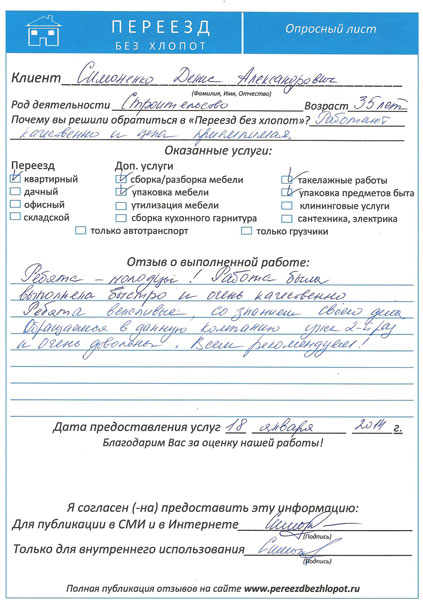 ПЕРЕЕЗД
БЕЗ ХЛОПОТ
Опросный лист
Клиент Симоненко Денис Александрович
(Фамилия, Имя, Отчество)
Род деятельности Строительство Возраст 35 лет
Почему вы решили обратиться в «Переезд без хлопот»? Работают
качественно и цены приемлимая.
Оказанные услуги:
Переезд Доп. услуги
квартирный сборка/разборка мебели такелажные работы
дачный упаковка мебели упаковка предметов быта
офисный утилизация мебели клининговые услуги
складской сборка кухонного гарнитура сантехника, электрика
только автотранспорт только грузчики
Отзыв о выполненной работе:
Ребята - молодцы! Работа была
выполнена быстро и очень качественно
Ребята вежливые, со знанием своего дела.
Обращаемся в данную компанию уже 2-й раз
и очень довольны. Всем рекомендуем!
Дата предоставления услуг 18 января 2014 г.
Благодарим Вас за оценку нашей работы!
Я согласен (-на) предоставить эту информацию:
Для публикации в СМИ и в Интернете
(Подпись)
Только для внутреннего использования
(Подпись)
Полная публикация отзывов на сайте www.pereezdbezhlopot.ru